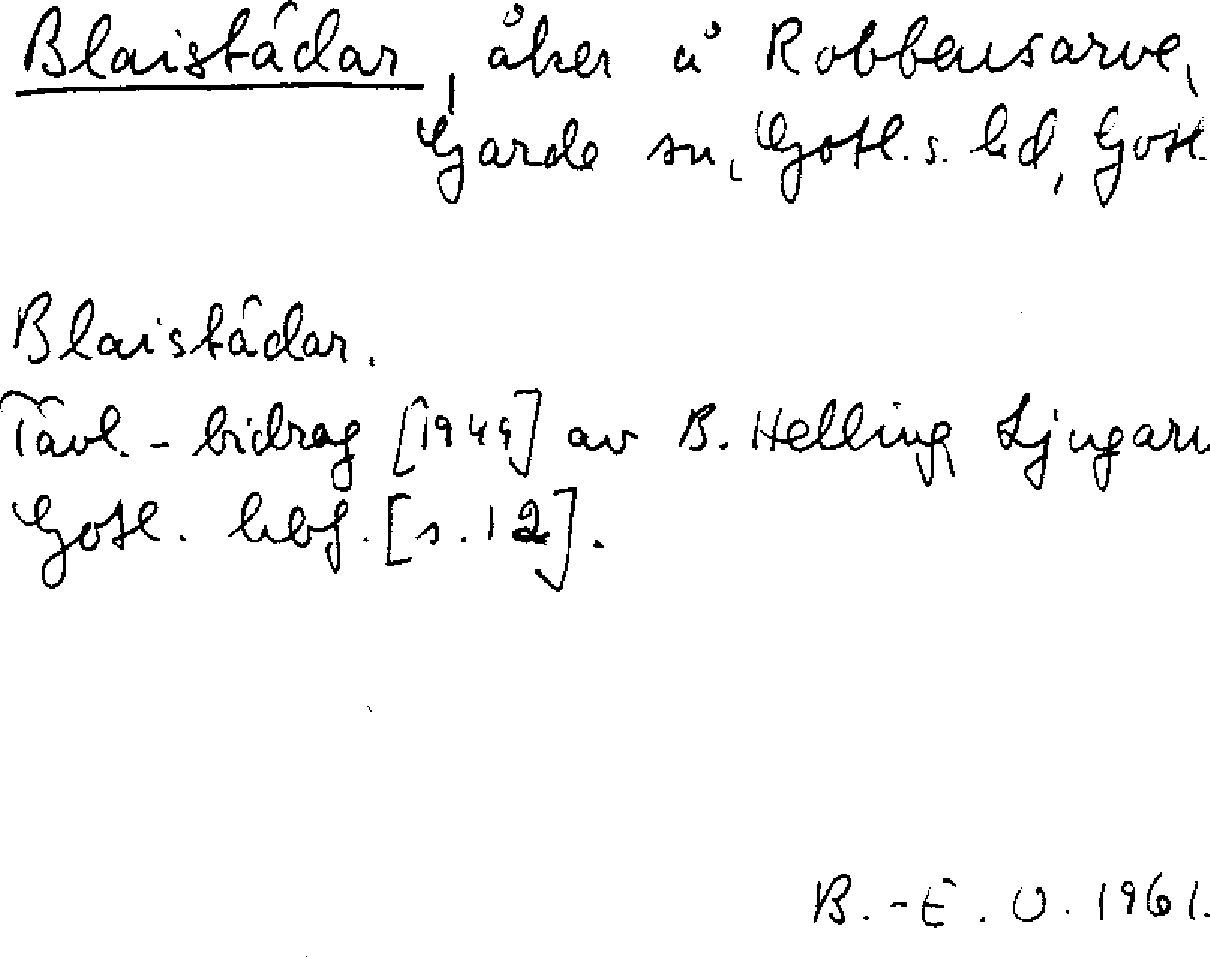 Blaistâdar, åker å Robbensarve,
Garde sn, Gotl. s. hd, Gotl.
Blaistâdar.
Tävl.-bidrag [1949] av B. Helling, Ljugarn
Gotl. hbf. [s. 12].
B.-E. O. 1961.